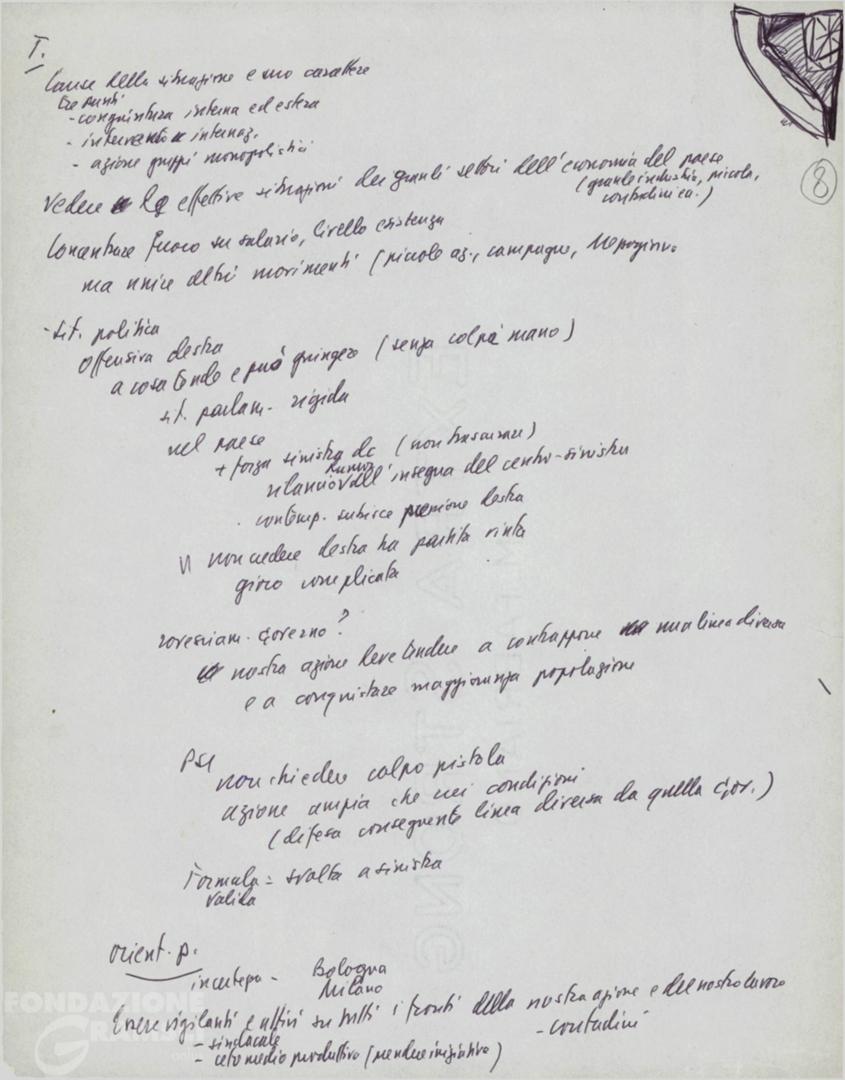 T.
Cause della situazione e suo carattere
tre punti
- congiuntura interna ed estera
- intervento internaz.
- azione gruppi monopolistici
8
Vedere le effettive situazioni dei grandi settori dell'economia del paese
(grande industria, piccola,
contadinica.)
Concentrare fuoco su salario, livello esistenza
ma unire altri movimenti (piccole az., campagne,
- sit. politica
offensiva destra
a cosa tende e può giungere (senza colpi mano)
sit. parlam. rigida
nel paese
+ forza sinistra dc (non trascurare)
Rumor
rilancio all'insegna del centro-sinistra
. contemp. subisce pressione destra
non cedere destra ha partita vinta
gioco complicato
rovesciam. governo?
nostra azione deve tendere a contrapporre una linea diversa
e a conquistare maggioranza popolazione
PSI
non chiedere colpo pistola
azione ampia che crei condizioni
(difesa conseguente linea diversa da quella gov.)
Formula = svolta a sinistra
valida
orient. p.
incertezza - Bologna
Milano
Essere vigilanti e attivi su tutti i fronti della nostra azione e del nostro lavoro
- sindacale
- contadini
- ceto medio produttivo (prendere iniziativa)
FONDAZIONE
GRAMSCI
online